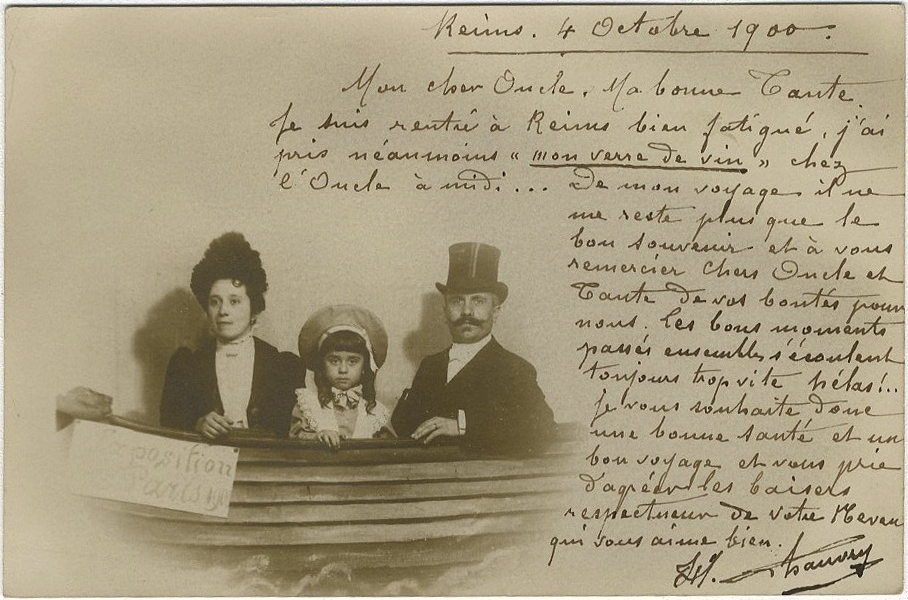 Reims. 4 Octobre 1900.
Mon cher Oncle, Ma bonne Tante,
Je suis rentré à Reims bien fatigué, j'ai
pris néanmoins « mon verre de vin » chez
l'Oncle à midi... De mon voyage il ne
me reste plus que le
bon souvenir et à vous
remercier chers Oncle et
Tante de vos bontés pour
nous. Les bons moments
passés ensembles s'écoulent
toujours trop vite hélas!..
Je vous souhaite donc
une bonne santé et un
bon voyage et vous prie
d'agréer les baisers
respectueux de votre Neveu
qui vous aime bien.
Exposition
Paris 1900